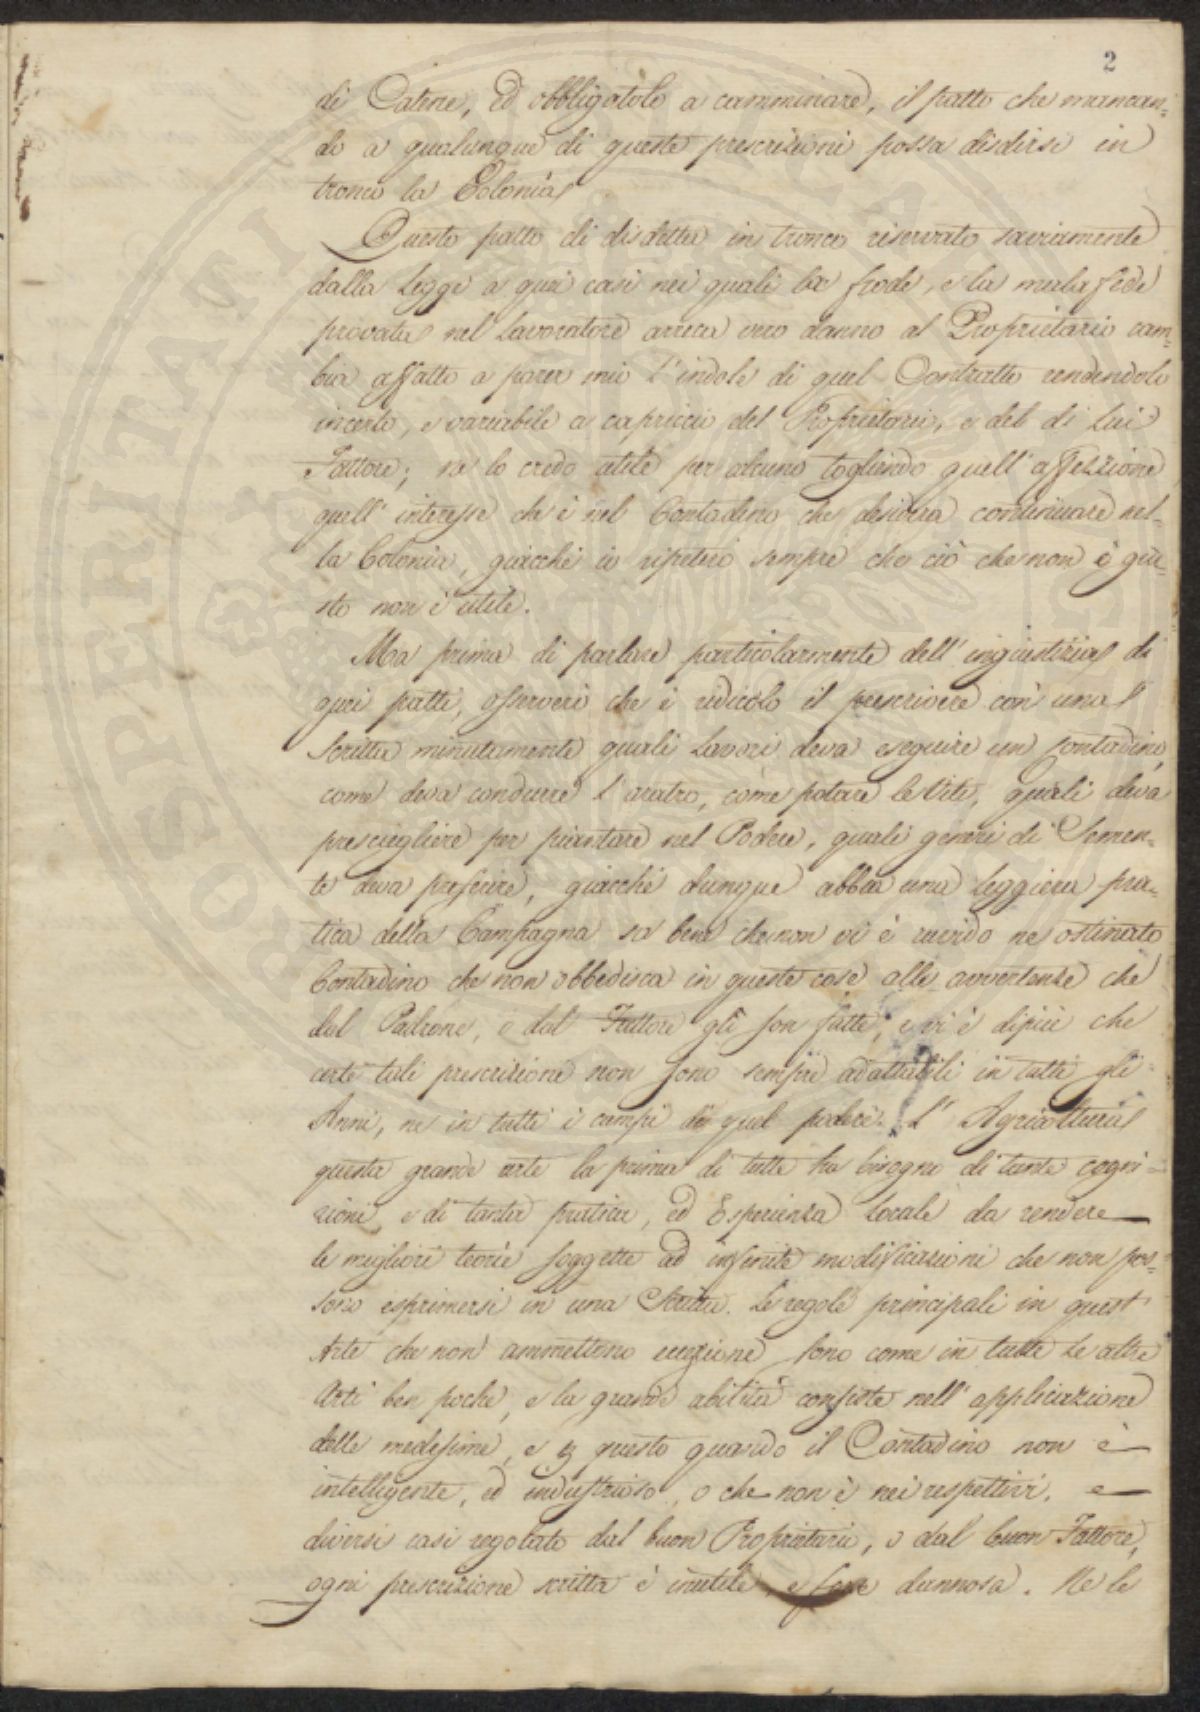 2
di Catene, ed obbligatolo a camminare, il patto che mancan-
do a qualunque di queste prescrizioni possa disdirsi in
tronco la Colonia
Questo patto di disdetta in tronco riservato saviamente
dalla Legge a quei casi nei quali la frode, e la mala fede
provata nel Lavoratore arreca vero danno al Proprietario cam-
bia affatto a parer mio l'indole di quel Contratto rendendolo
incerto, e variabile a capriccio del Proprietario, e del di Lui
Fattore; ne lo credo utile per alcuno togliendo quell'affezzione
quell'interesse che è nel Contadino che desidera continuare nel-
la Colonia, giacchè io ripeterò sempre che ciò che non è giu-
sto non è utile.
Ma prima di parlare particolarmente dell'ingiustizia di
quei patti, osserverò che è ridicolo il prescrivere con una
Scritta minutamente quali Lavori deva eseguire un Contadino,
come deva condurre l'aratro, come potare le Viti, quali deva
prescegliere per piantare nel Podere, quali generi di Semen-
te deva preferire, giacchè chunque abbia una leggiera pra-
tica della Campagna sa bene che non vi è ruvido ne ostinato
Contadino che non obbedisca in queste cose alle avvertenze che
dal Padrone, o dal Fattore gli son fatte, e vi è dipiù che
certe tali prescrizione non sono sempre adattabili in tutti gli
Anni, ne in tutti i campi di quel podere. L'Agricoltura
questa grande arte la prima di tutte ha bisogno di tante cogni-
zioni, e di tanta pratica, ed Esperienza Locale da rendere
le migliori teorie soggette ad infinite modificazioni che non pos-
sono esprimersi in una Scritta. Le regole principali in quest'
Arte che non ammettono eccezione sono come in tutte Le altre
Arti ben poche, e la grande abilità consiste nell'applicazione
delle medesime, e questo quando il Contadino non è
intelligente, ed industrioso, o che non è nei respettivi, e
diversi casi regolato dal buon Proprietario, o dal buon Fattore,
ogni prescrizione scritta è inutile, e forse dannosa. Ne le